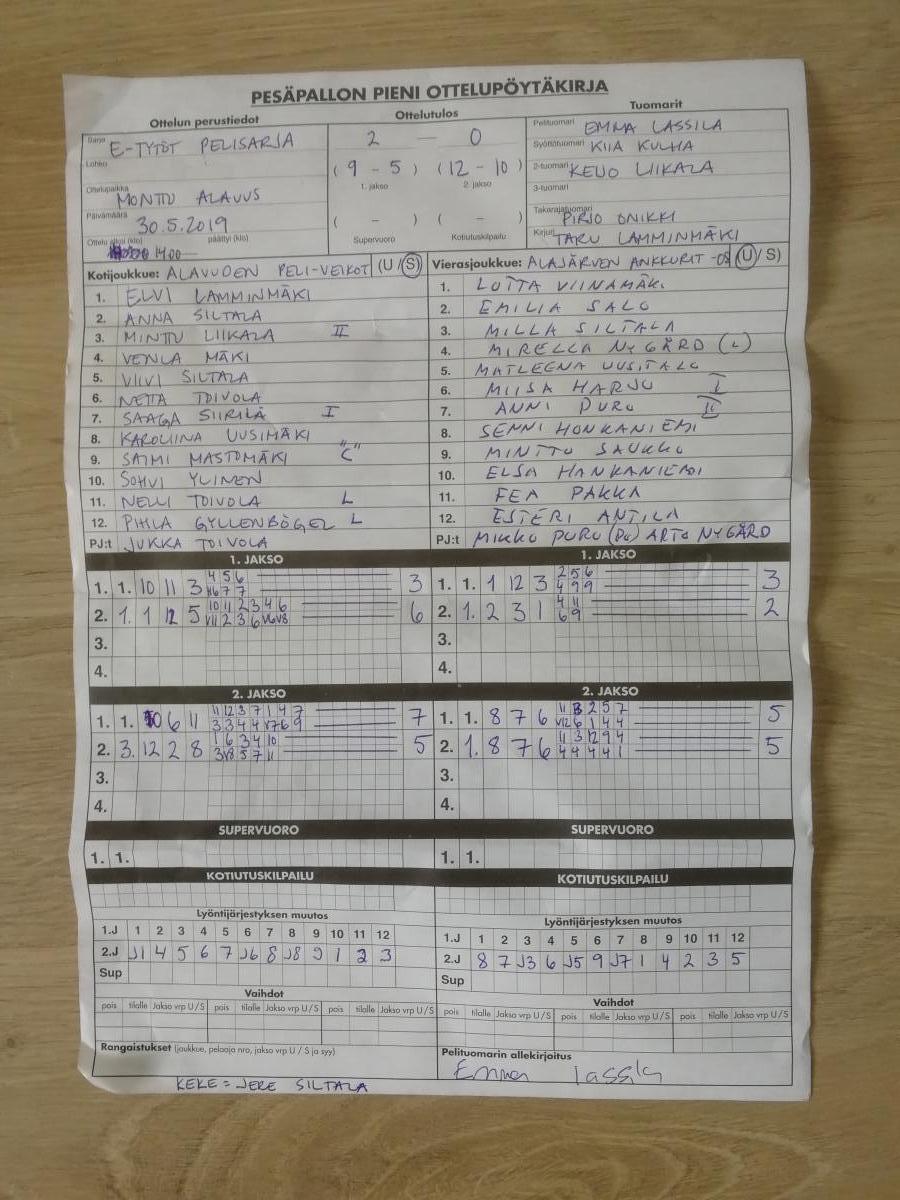 PESÄPALLON PIENI OTTELUPÖYTÄKIRJA
Ottelun perustiedot Ottelutulos Tuomarit
Sarja E-TYTÖT PELISARJA 2 — 0 Pelituomari EMMA LASSILA
Lohko (9 - 5) (12 - 10) Syöttötuomari KIIA KULHA
1. jakso 2. jakso 2-tuomari KEIJO LIIKALA
Ottelupaikka MONTTU ALAVUS 3-tuomari
Päivämäärä 30.5.2019 ( - ) ( - ) Takarajatuomari PIRJO ONIKKI
Ottelu alkoi (klo) 1400 päättyi (klo) Supervuoro Kotiutuskilpailu Kirjuri TARU LAMMINMÄKI
Kotijoukkue: ALAVUDEN PELI-VEIKOT (U/S) Vierasjoukkue: ALAJÄRVEN ANKKURIT -08 (U/S)
1. ELVI LAMMINMÄKI 1. LOTTA VIINAMÄKI
2. ANNA SILTALA 2. EMILIA SALO
3. MINTTU LIIKALA II 3. MILLA SILTALA
4. VENLA MÄKI 4. MIRELLA NYGÅRD (L)
5. VIIVI SILTALA 5. MATLEENA UUSITALO
6. NETTA TOIVOLA 6. MIISA HARJU I
7. SAAGA SIIRILÄ I 7. ANNI PURO II
8. KAROLIINA UUSIMÄKI 8. SENNI HONKANIEMI
9. SAIMI MASTOMÄKI "C" 9. MINTTU SAUKKO
10. SOHVI YLINEN 10. ELSA HANKANIEMI
11. NELLI TOIVOLA L 11. FEA PAKKA
12. PIHLA GYLLENBÖGEL L 12. ESTERI ANTILA
PJ:t JUKKA TOIVOLA PJ:t MIKKO PURO (PJ) ARTO NYGÅRD
1. JAKSO 1. JAKSO
1. 1. 10 11 3 4 5 6 3 1. 1. 1 12 3 2 5 6 3
V6 7 7 4 9 9
2. 1. 1 12 5 10 11 2 3 4 6 6 2. 1. 2 3 1 4 11 2
V11 2 3 6 V6 V8 6 9
3. 3.
4. 4.
2. JAKSO 2. JAKSO
1. 1. 10 6 11 11 12 3 7 1 4 7 7 1. 1. 8 7 6 11 3 2 5 7 5
3 3 4 4 V7 6 9 V12 6 1 4 4
2. 3. 12 2 8 1 6 3 4 10 5 2. 1. 8 7 6 11 3 12 9 4 5
3 V8 5 7 11 4 4 4 4 1
3. 3.
4. 4.
SUPERVUORO SUPERVUORO
1. 1. 1. 1.
KOTIUTUSKILPAILU KOTIUTUSKILPAILU
Lyöntijärjestyksen muutos Lyöntijärjestyksen muutos
1.J 1 2 3 4 5 6 7 8 9 10 11 12 1.J 1 2 3 4 5 6 7 8 9 10 11 12
2.J J1 4 5 6 7 J6 8 J8 9 1 2 3 2.J 8 7 J3 6 J5 9 J7 1 4 2 3 5
Sup Sup
Vaihdot Vaihdot
pois tilalle Jakso vrp U/S pois tilalle Jakso vrp U/S pois tilalle Jakso vrp U/S pois tilalle Jakso vrp U/S pois tilalle Jakso vrp U/S pois tilalle Jakso vrp U/S
Rangaistukset (joukkue, pelaaja nro, jakso vrp U / S ja syy) Pelituomarin allekirjoitus
Emma Lassila
KEKE = JERE SILTALA